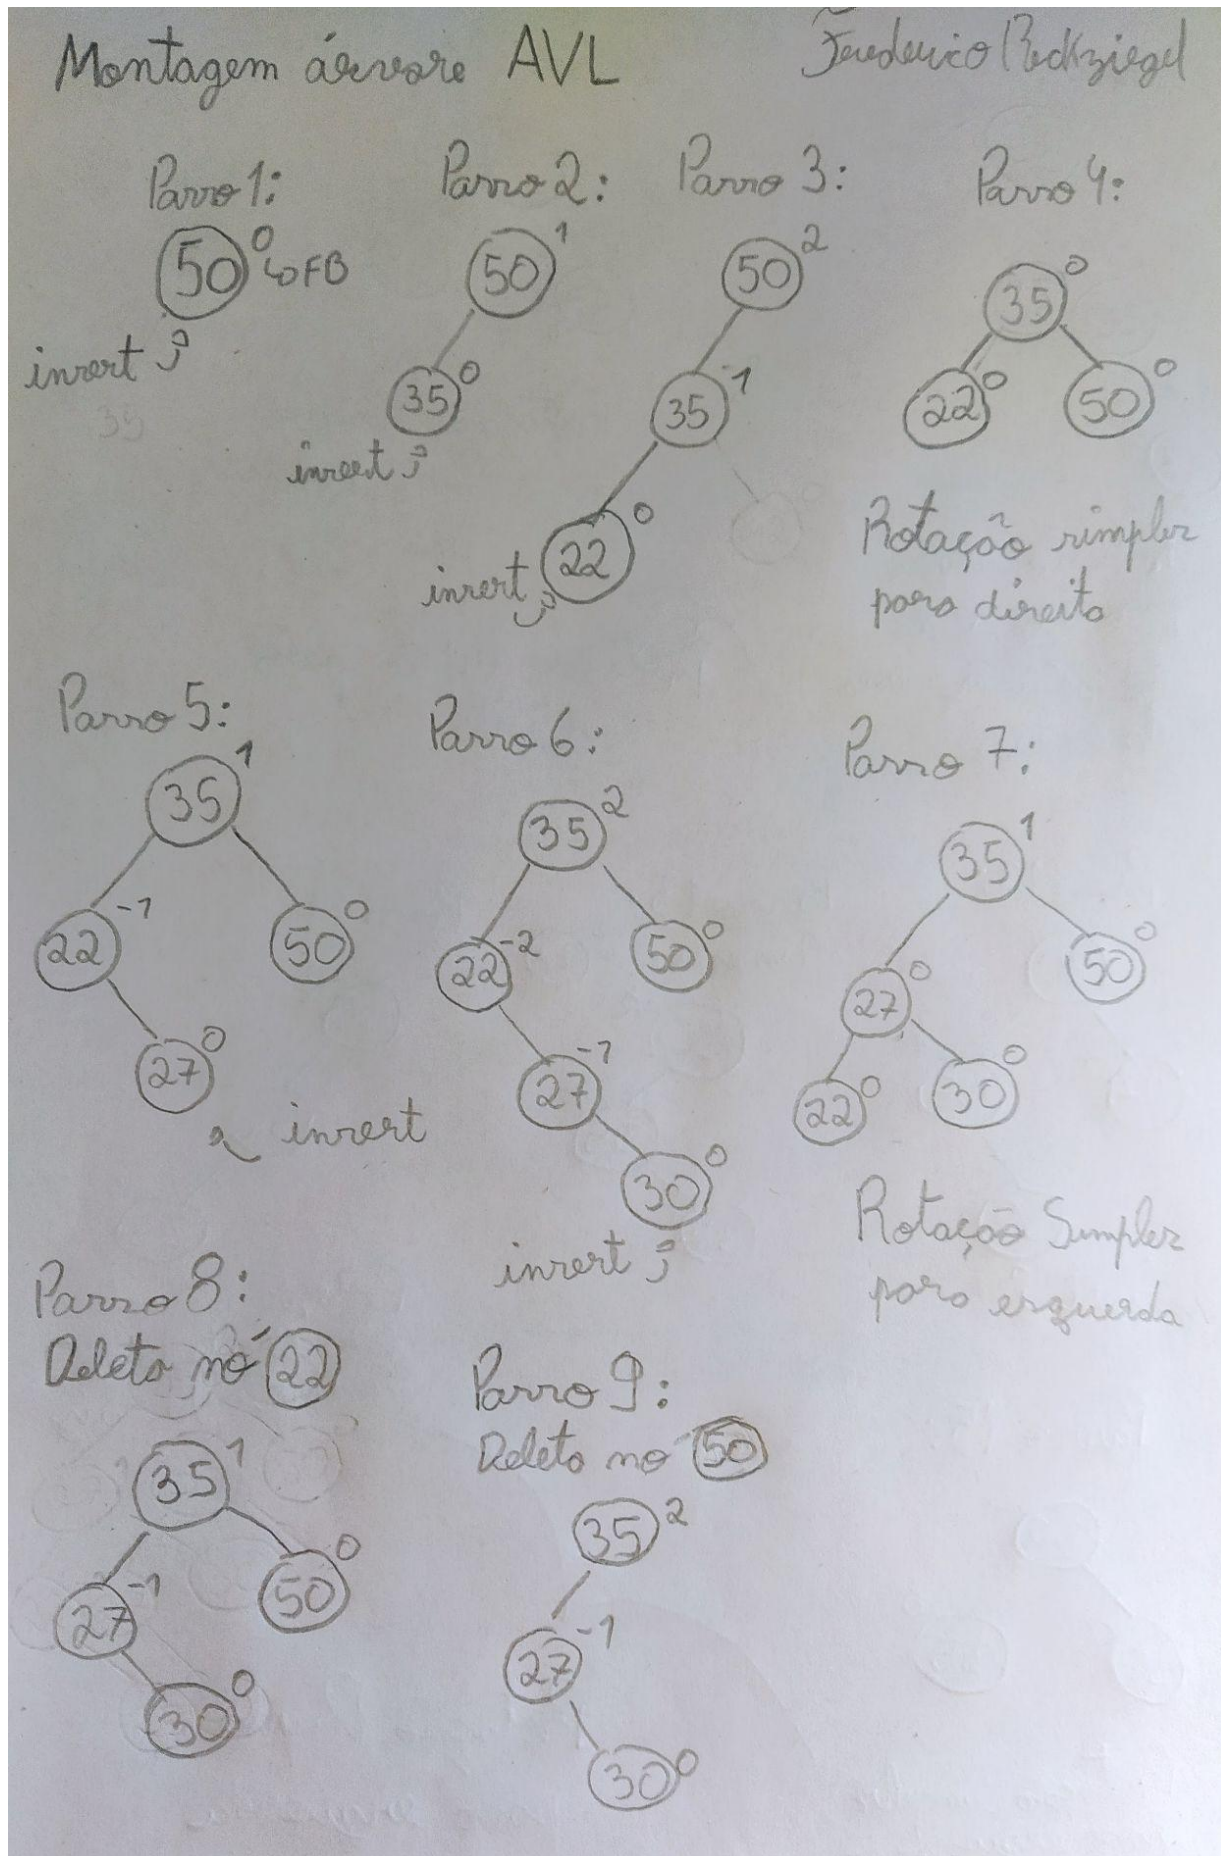 Montagem árvore AVL
Frederico Reckziegel
Passo 1:
50 0 FB
insert
35
Passo 2:
50 1
35 0
insert
Passo 3:
50 2
35 1
22 0
insert
Passo 4:
35 0
22 0 50 0
Rotação simples
para direita
Passo 5:
35 1
22 -1 50 0
27 0
insert
Passo 6:
35 2
22 -2 50 0
27 -1
30 0
insert
Passo 7:
35 1
27 0 50 0
22 0 30 0
Rotação Simples
para esquerda
Passo 8:
Deleta nó 22
35 1
27 -1 50 0
30 0
Passo 9:
Deleta no 50
35 2
27 -1
30 0